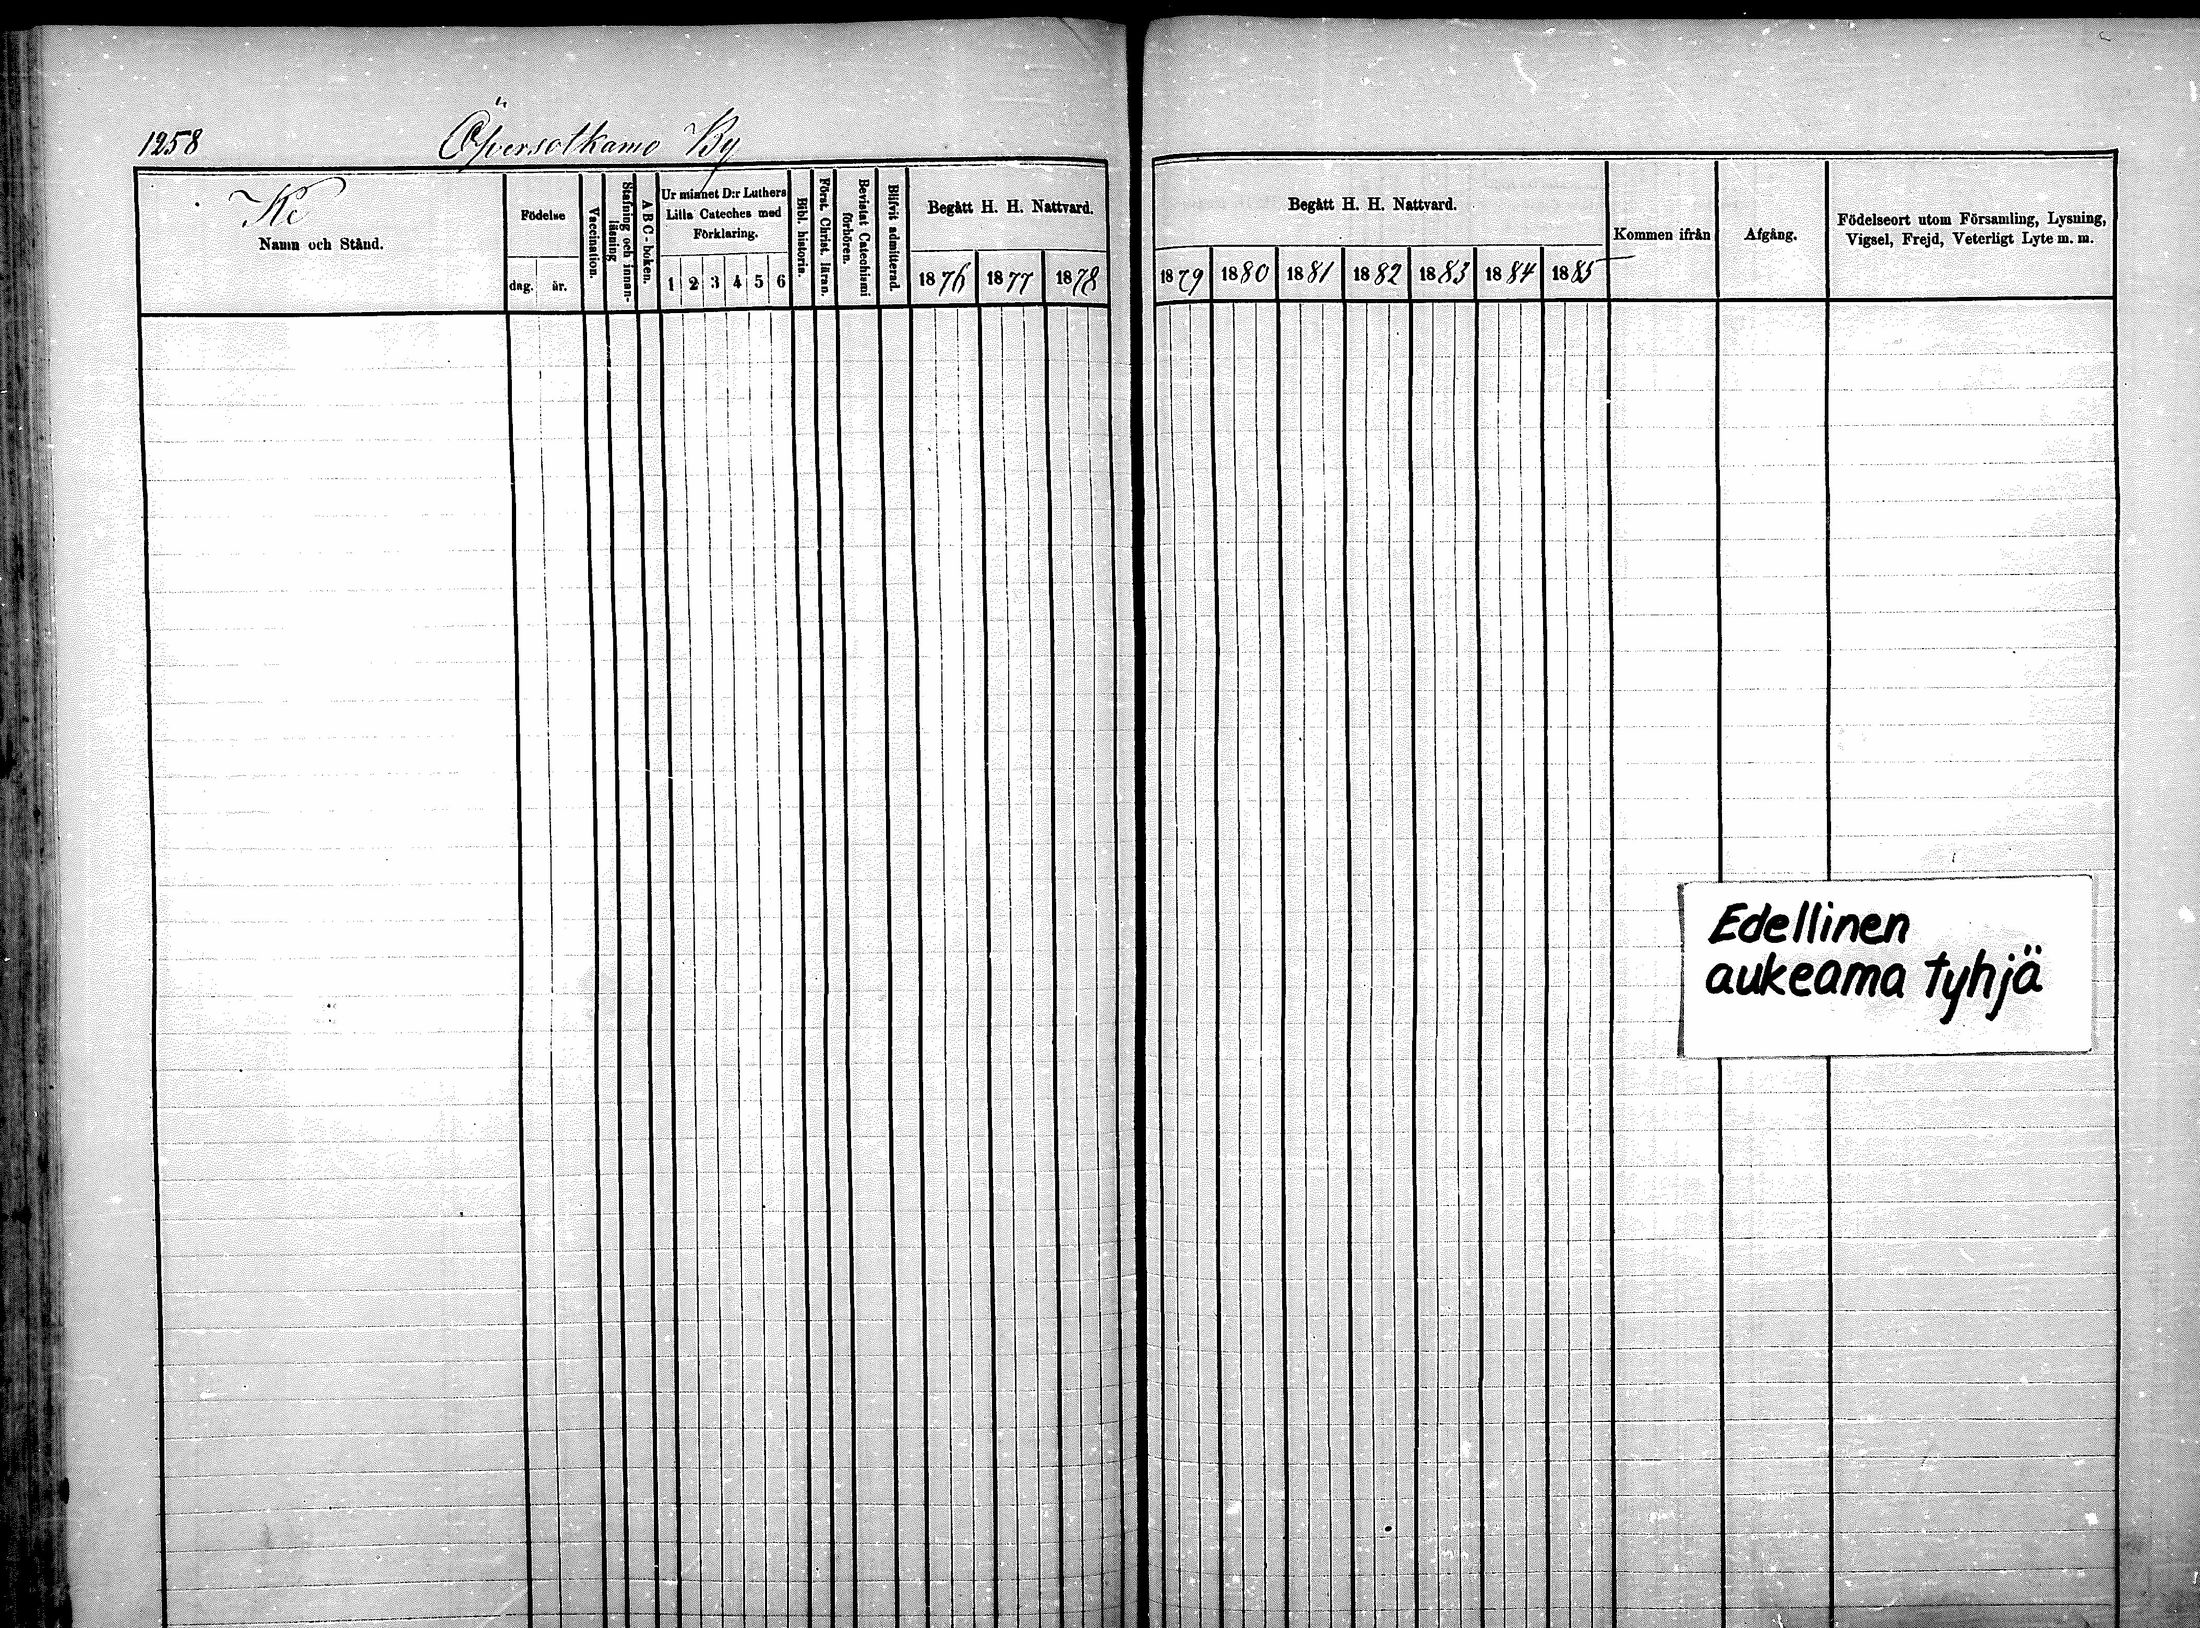 1258
Öfversotkamo By
Ke
Namn och Stånd.
Födelse
dag.
år.
Vaccination.
Stafning och innan-
läsning
A B C - boken.
Ur minnet D:r Luthers
Lilla Cateches med
Förklaring.
1 2 3 4 5 6
Bibl. historia.
Först. Christ. läran.
Bevistat Catechismi
förhören.
Blifvit admitterad
Begått H. H. Nattvard.
1876 1877 1878
Begått H. H. Nattvard.
1879 1880 1881 1882 1883 1884 1885
Kommen ifrån
Afgång.
Födelseort utom Församling, Lysning,
Vigsel, Frejd, Veterligt Lyte m. m.
Edellinen
aukeama tyhjä